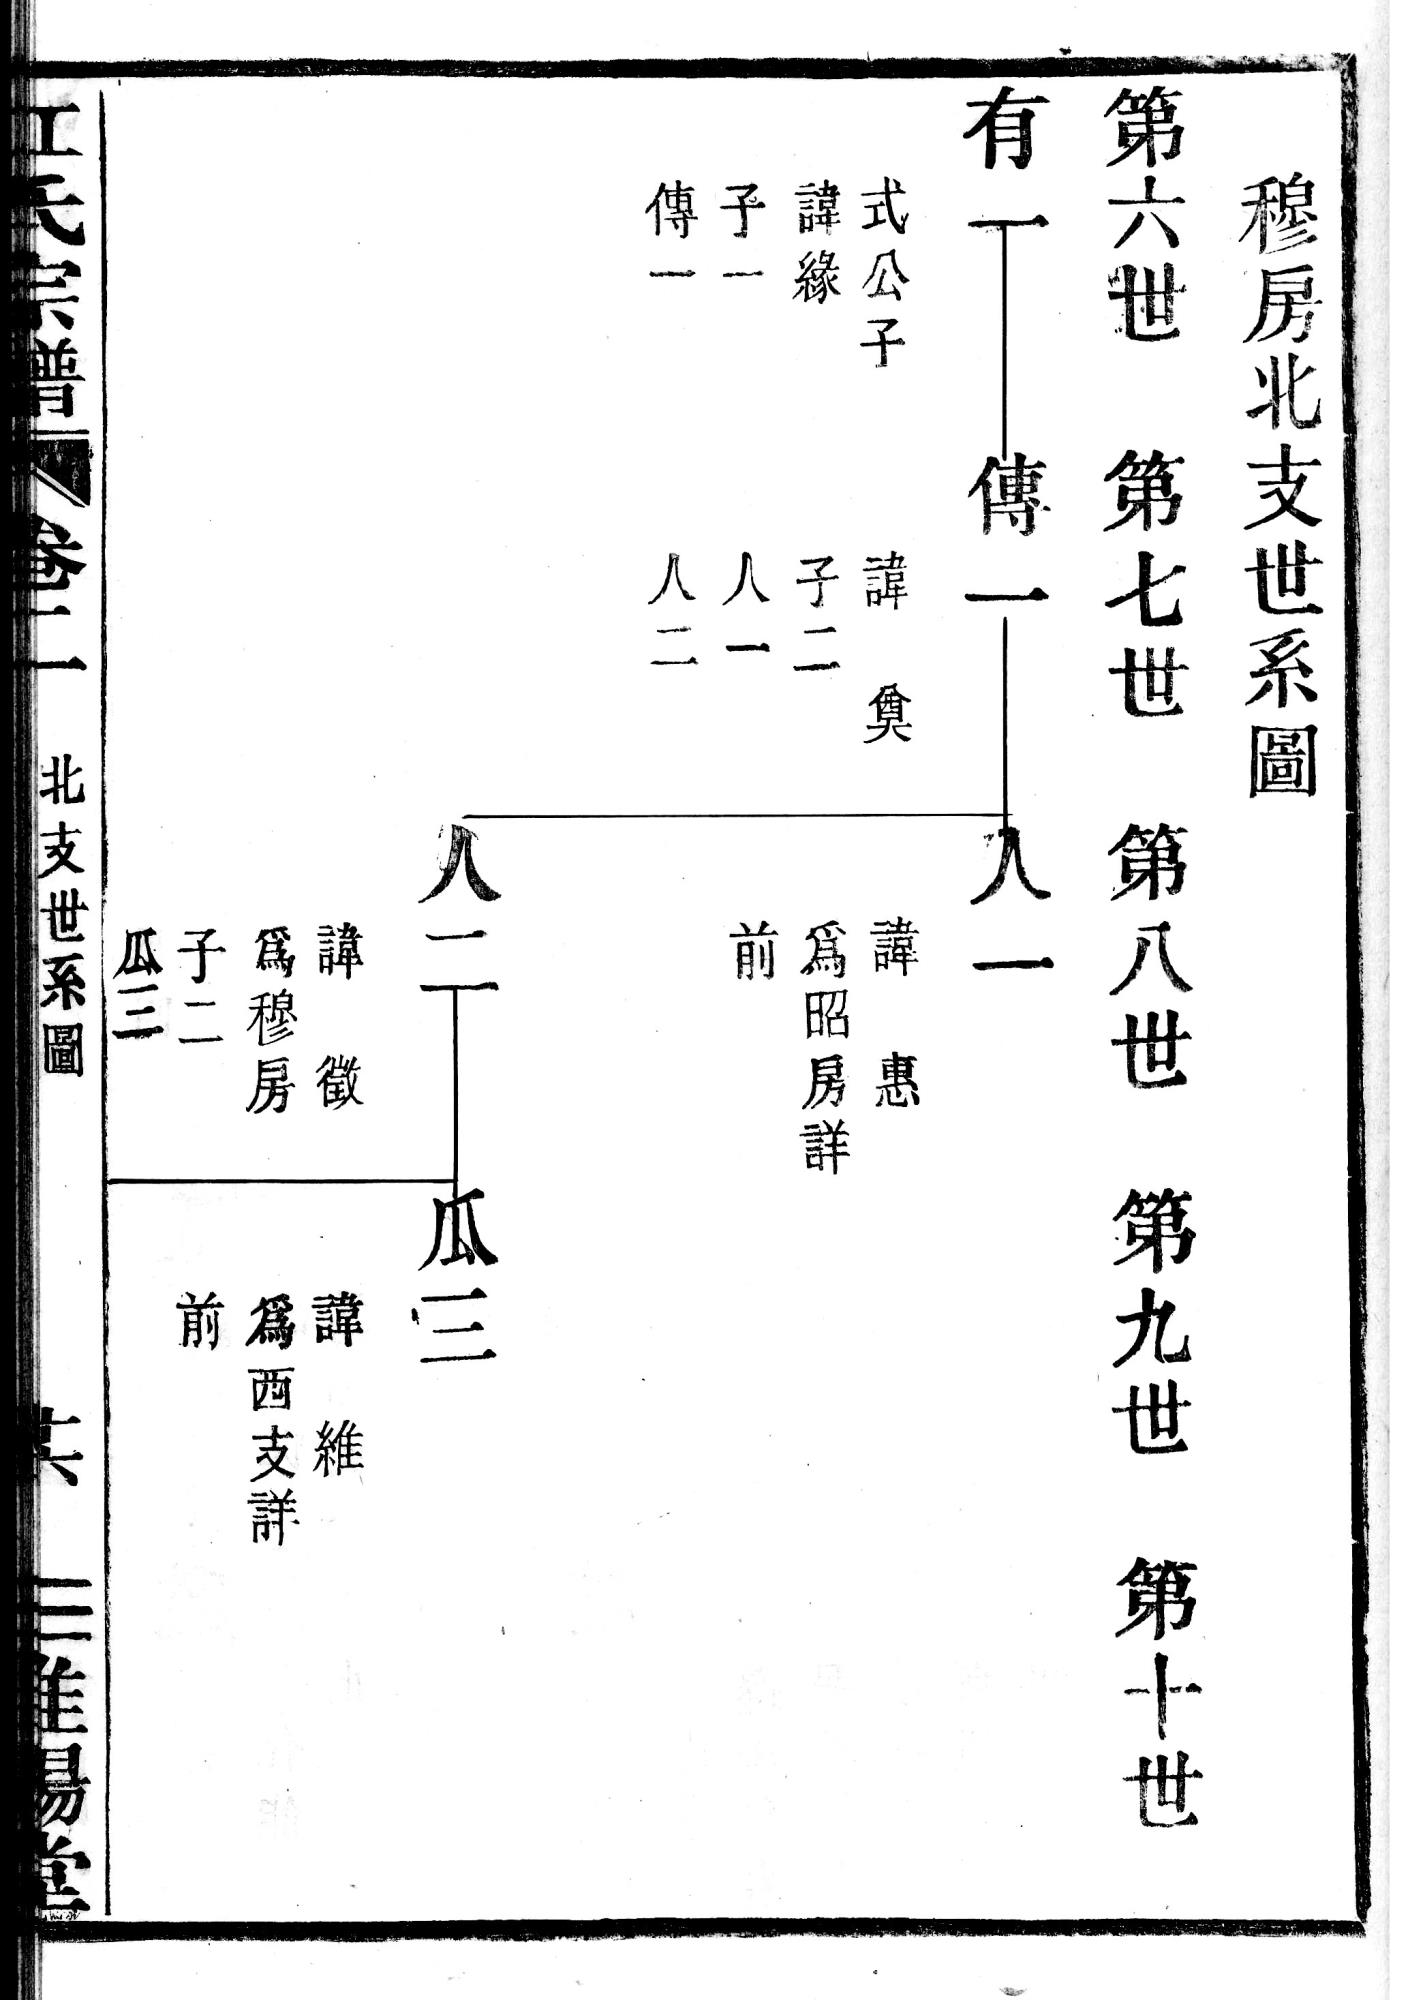 穆房北支世系圖
第六世 第七世 第八世 第九世 第十世
有一 傳一 人一
式公子
諱緣
子一
傳一
諱奠
子二
人一
人二
諱惠
為昭房詳
前
人二 瓜三
諱徵
為穆房
子二
瓜三
諱維
為西支詳
前
江氏宗譜 卷二 北支世系圖 三惟陽堂